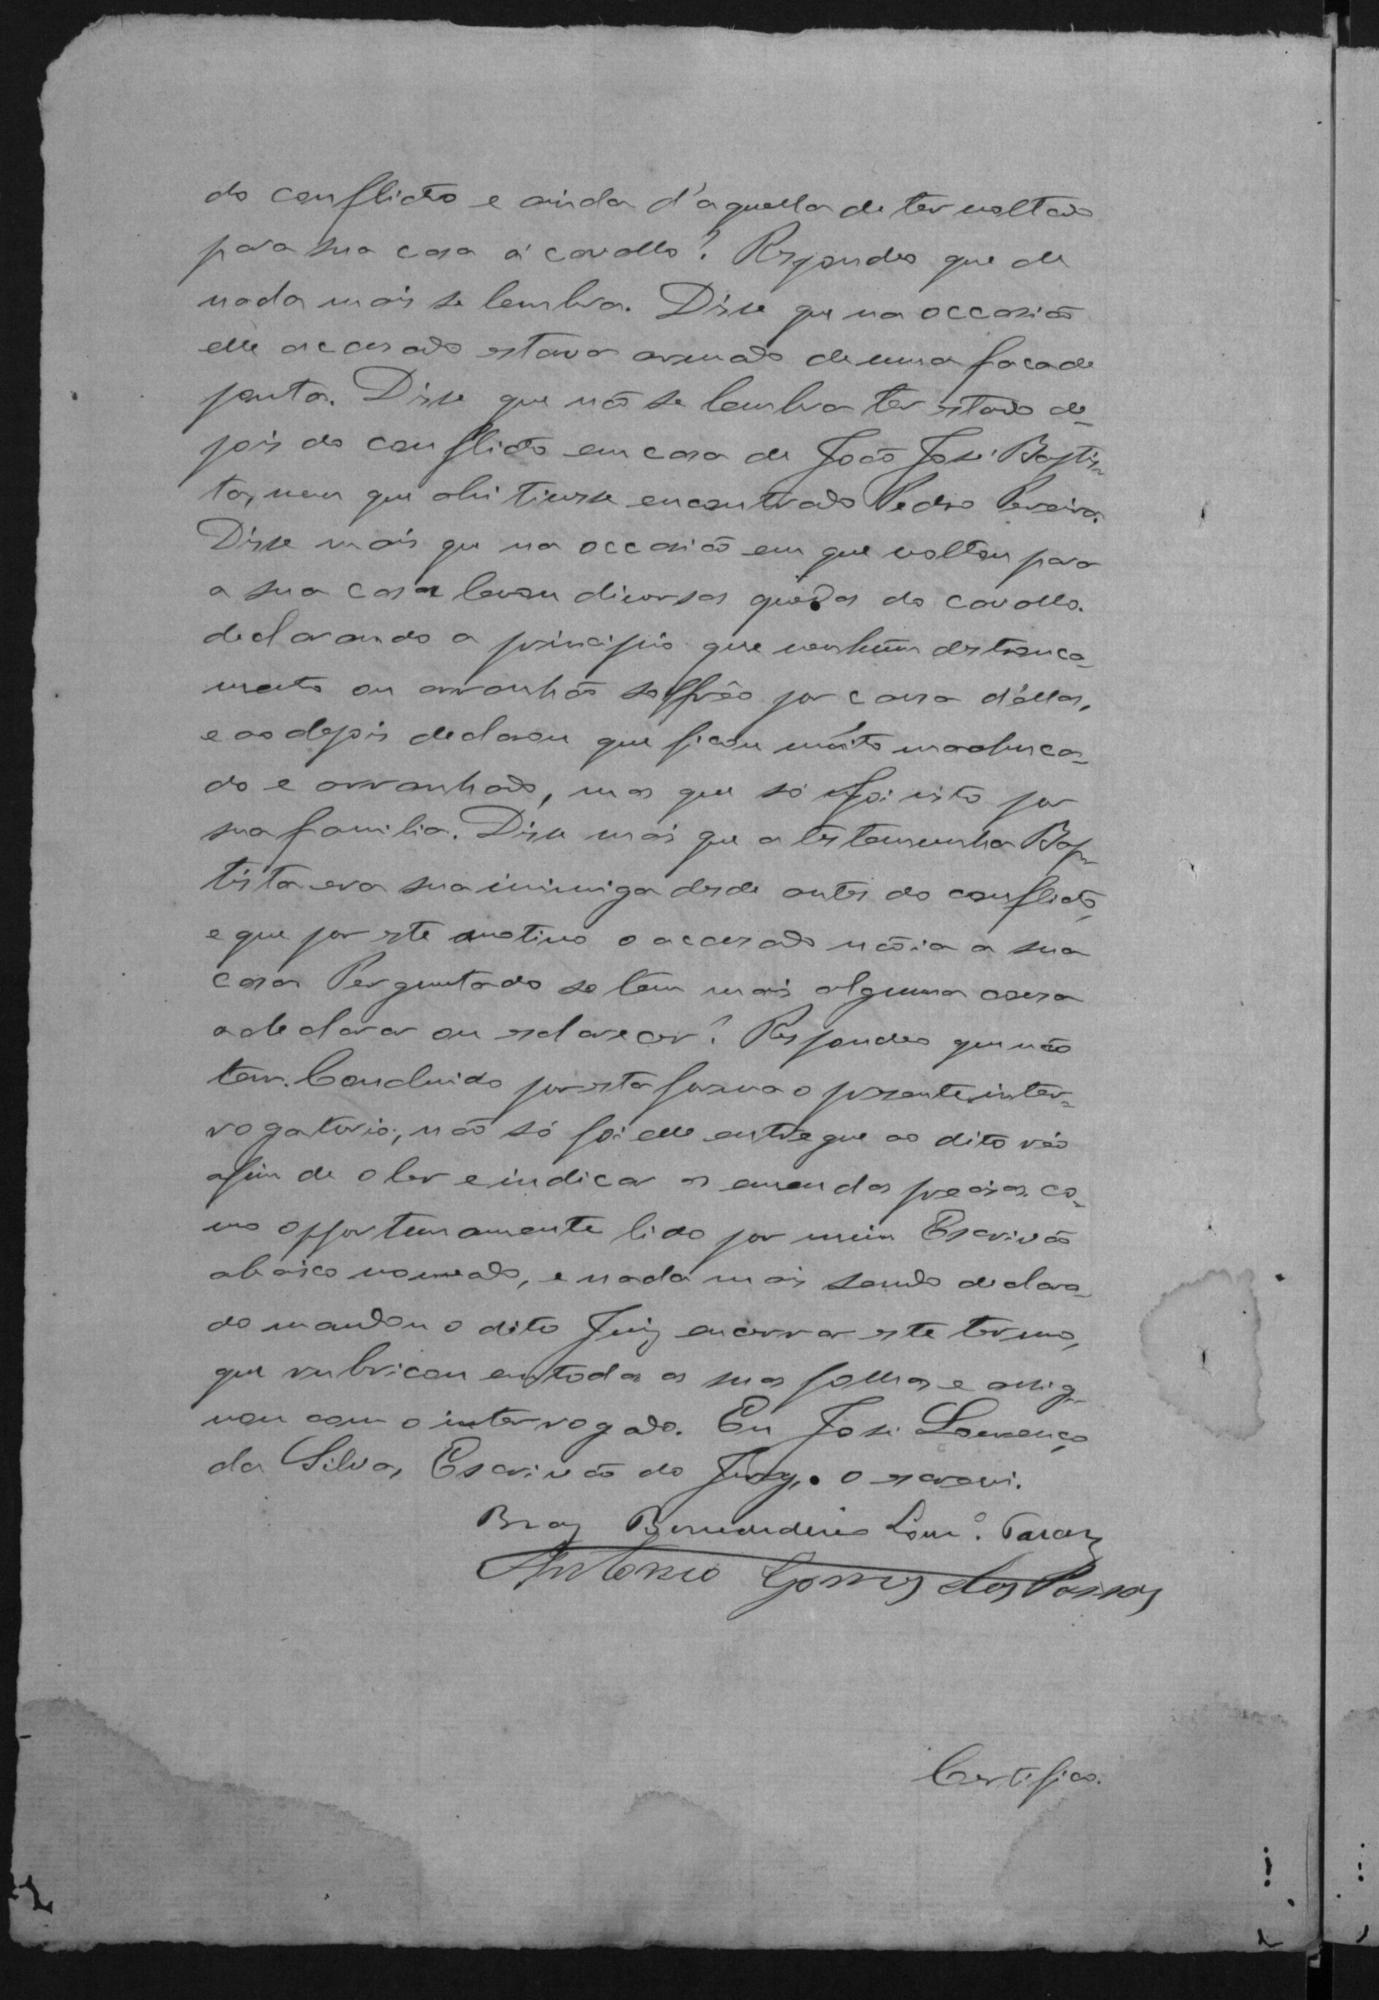 do conflicto e ainda d'aquella de ter voltado
para sua casa á cavallo? Respondeo que de
nada mais se lembra. Disse que na occasião
elle accusado estava armado de uma faca de
ponta. Disse que não se lembra ter estado de-
pois do conflicto em casa de João José Baptis-
ta, nem que ahi tivesse encontrado Pedro Pereira.
Disse mais que na occasião em que voltou para
a sua casa levou diversas quédas do cavallo.
declarando a principio que nenhum destronca-
mento ou arranhão soffrêo por causa d'éllas,
e ao depois declarou que ficou muito machuca-
do e arranhado, mas que só foi visto por
sua familia. Disse mais que a testemunha Bap-
tista era sua inimiga desde antes do conflicto,
e que por este motivo o accusado não ia a sua
casa Perguntado se tem mais alguma cousa
a declarar ou esclarecer? Respondeo que não
tem. Concluido por esta forma o presente inter-
rogatorio, não só foi elle entregue ao dito réo
afim de o ler e indicar as emendas precisas co-
mo opportunamente lido por mim Escrivão
abaixo nomeado, e nada mais sendo declara-
do mandou o dito Juiz encerrar este termo,
que rubricou em todas as suas folhas e assig-
nou com o interrogado. Eu José Lourenço
da Silva, Escrivão do Jury, o escrevi.
Braz Bernardino Lour.º Tavares
Antonio Gomes dos Passos
Certifico.